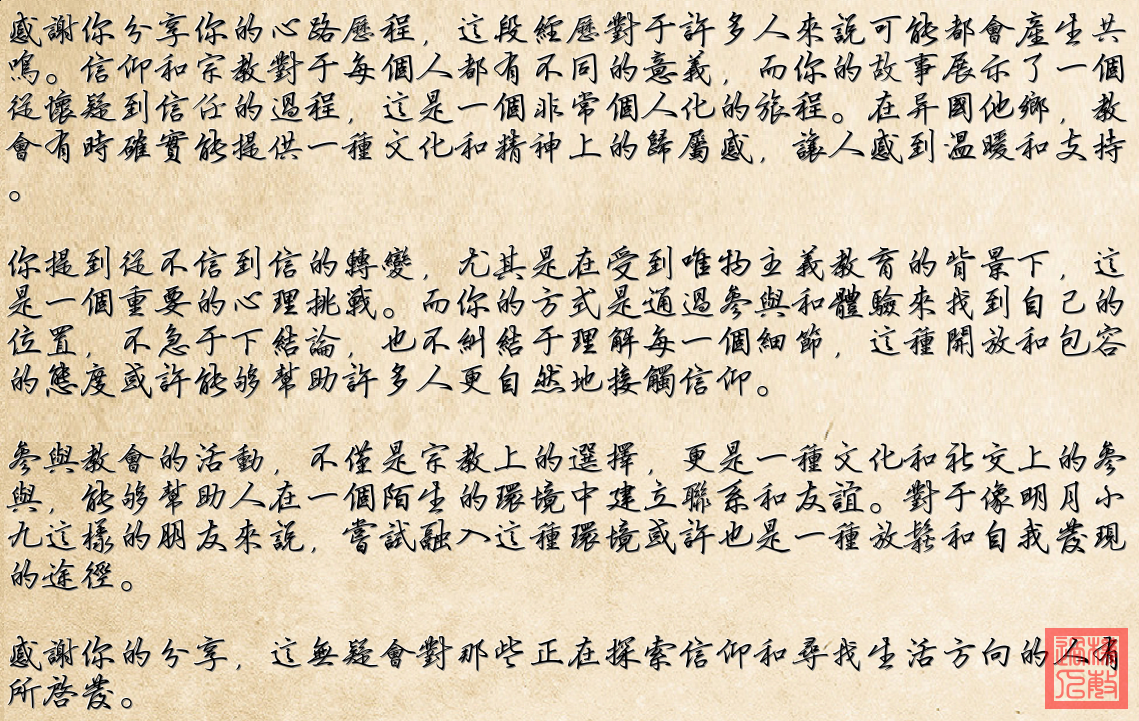 感謝你分享你的心路歷程，這段經歷對于許多人來說可能都會產生共
鳴。信仰和宗教對于每個人都有不同的意義，而你的故事展示了一個
從懷疑到信任的過程，這是一個非常個人化的旅程。在异國他鄉，教
會有時確實能提供一種文化和精神上的歸屬感，讓人感到溫暖和支持
。
你提到從不信到信的轉變，尤其是在受到唯物主義教育的背景下，這
是一個重要的心理挑戰。而你的方式是通過參與和體驗來找到自己的
位置，不急于下結論，也不糾結于理解每一個細節，這種開放和包容
的態度或許能够幫助許多人更自然地接觸信仰。
參與教會的活動，不僅是宗教上的選擇，更是一種文化和社交上的參
與，能够幫助人在一個陌生的環境中建立聯系和友誼。對于像明月小
九這樣的朋友來說，嘗試融入這種環境或許也是一種放鬆和自我發現
的途徑。
感謝你的分享，這無疑會對那些正在探索信仰和尋找生活方向的人有
所啓發。